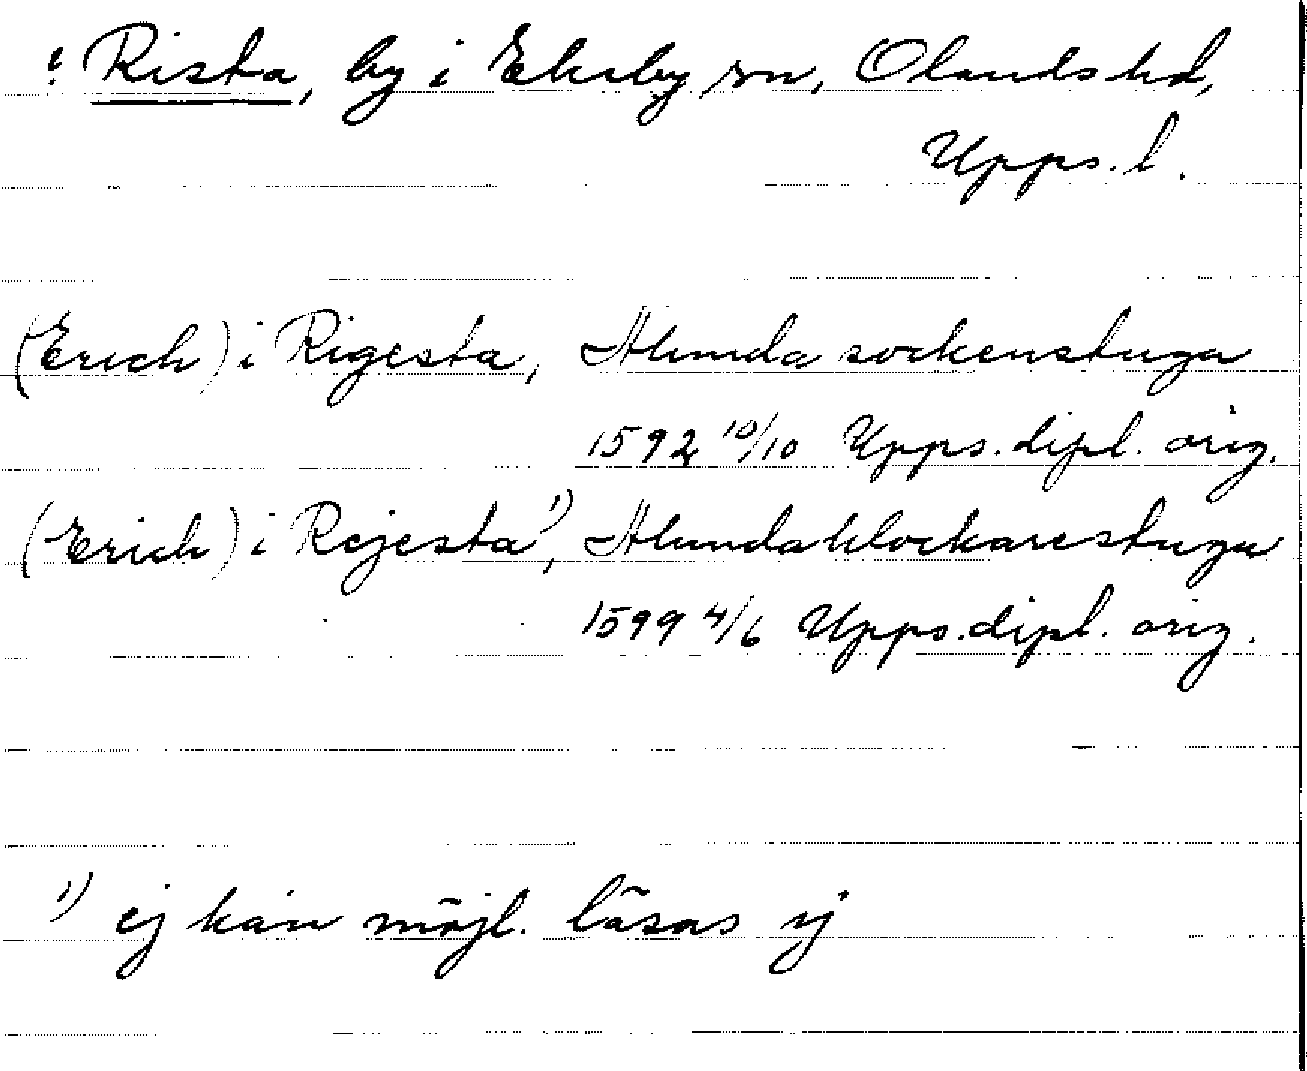 ! Rista, by i Ekeby sn, Olands hd,
Upps. l.
(Erich) i Rigesta, Alunda sockenstuga
1592 10/10 Upps. dipl. orig.
(Erich) i Rejesta¹⁾, Alunda klockarestuga
1599 4/6 Upps. dipl. orig.
¹⁾ ej kan möjl. läsas ij